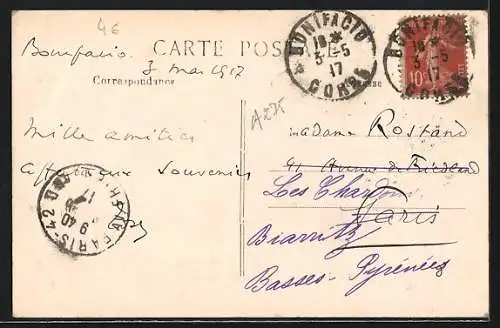 4€
Bonifacio
CARTE POS
3 mai 1917
Correspondance
BONIFACIO
18 *
3 - 5
17
CORSE
BONIFACIO
18 *
3 - 5
17
CORSE
10
A225
Mille amitiés
affectueux souvenirs
Madame Rostand
41 Avenue de Friedland
Les Chardons
Paris
Biarritz
Basses-Pyrénées
PARIS-42
9 40
17